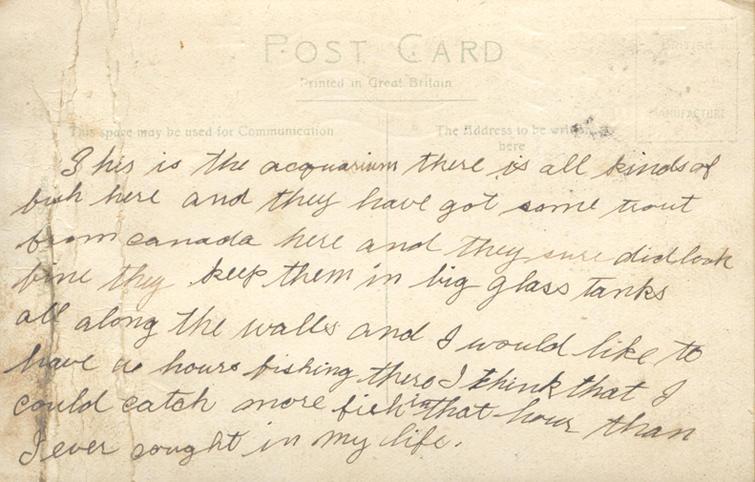 POST CARD
Printed in Great Britain
BRITISH
MANUFACTURE
This space may be used for Communication
The Address to be written
here
This is the acquarium there is all kinds of
fish here and they have got some trout
from canada here and they sure did look
fine they keep them in big glass tanks
all along the walls and I would like to
have a hours fishing there I think that I
could catch more fish in that hour than
I ever cought in my life.